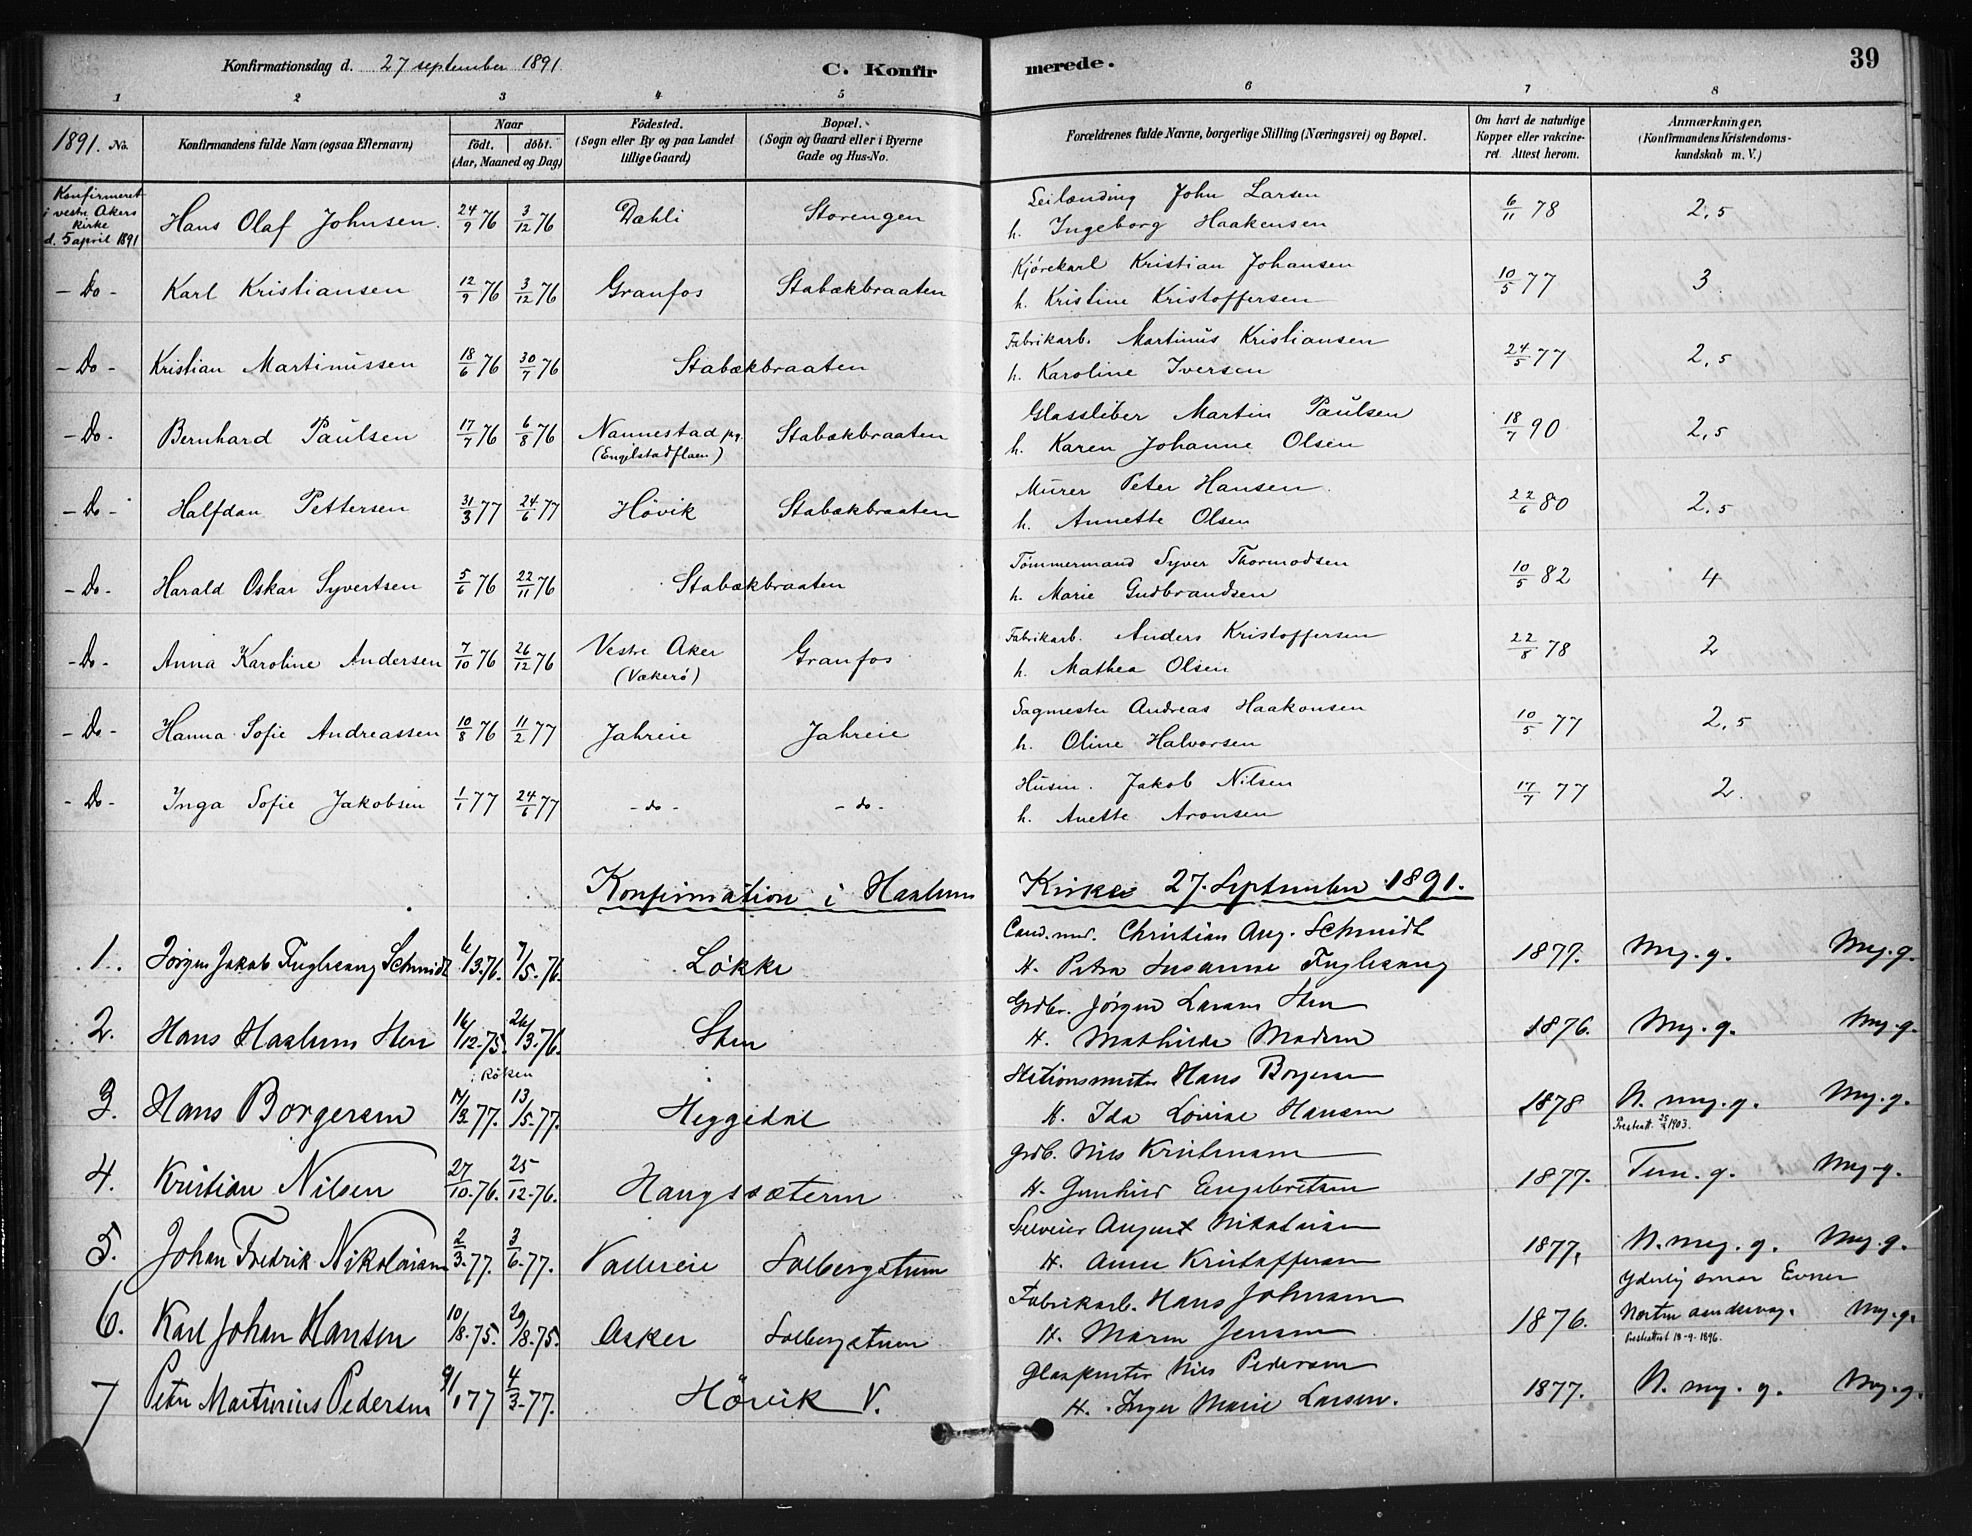 Konfirmationsdag d. 27 september 1891 C. Konfirmerede. 39
1 2 3 4 5 6 7 8
1891. No.
Konfirmandens fulde Navn (ogsaa Efternavn)
Naar
født. døbt.
(Aar, Maaned og Dag)
Fødested.
(Sogn eller By og paa Landet
tillige Gaard)
Bopæl.
(Sogn og Gaard eller i Byerne
Gade og Hus-No.
Forældrenes fulde Navne, borgerlige Stilling (Næringsvei) og Bopæl.
Om havt de naturlige
Kopper eller vakcine-
ret. Attest herom.
Anmærkninger,
(Konfirmandens Kristendoms-
kundskab m. V.)
Konfirmeret
i vestre Akers
kirke
d. 5 april 1891
Hans Olaf Johnsen. 24/9 76 3/12 76 Dæhli Storengen Leilænding John Larsen
h. Ingeborg Haakensen 6/11 78 2,5
- Do - Karl Kristiansen 12/9 76 3/12 76 Granfos Stabækbraaten Kjørekarl Kristian Johansen
h. Kristine Kristoffersen 10/5 77 3
- Do - Kristian Martinussen 18/6 76 30/7 76 Stabækbraaten Fabrikarb. Martinus Kristiansen
h. Karoline Iversen 24/5 77 2,5
- Do - Bernhard Paulsen 17/7 76 6/8 76 Nannestad pg. Stabækbraaten Glassliber Martin Paulsen
(Engelstadflaen) h. Karen Johanne Olsen 18/7 90 2,5
- Do - Halfdan Pettersen 31/3 77 24/6 77 Høvik Stabækbraaten Murer Peter Hansen
h. Annette Olsen 22/6 80 2,5
- Do - Harald Oskar Syvertsen 5/6 76 22/11 76 Stabækbraaten Tømmermand Syver Thormodsen
h. Marie Gudbrandsen 10/5 82 4
- Do - Anna Karoline Andersen 7/10 76 26/12 76 Vestre Aker Granfos Fabrikarb. Anders Kristoffersen
(Vækerø) h. Mathea Olsen 22/8 78 2
- Do - Hanna Sofie Andreassen 10/8 76 11/2 77 Jahreie Jahreie Sagmester Andreas Haakonsen
h. Oline Halvorsen 10/5 77 2,5
- Do - Inga Sofie Jakobsen 1/1 77 24/6 77 - do - - do - Husm. Jakob Nilsen
h. Anette Aronsen 17/7 77 2.
Konfirmation i Haslum Kirke 27. September 1891.
1. Jørgen Jakob Fuglesang Schmidt 6/3.76. 7/5.76. Løkke Cand. med. Christian Aug. Schmidt
H. Petra Susanne Fuglesang 1877. Mg. g. Mg. g.
2. Hans Haslum Sten 16/12.75. 26/3.76. Sten Grdbr. Jørgen Larsen Sten
H. Mathilde Madsen 1876. Mg. g. Mg. g.
i Røken
3. Hans Borgersen 14/3.77. 13/5.77. Heggedal Stationsmester Hans Borgersen
H. Ida Lovise Hansen 1878 N. mg. g. Mg. g.
4. Kristian Nilsen 27/10.76. 25/12.76. Haugssæteren Grdb. Nils Kristiansen
H. Gunhild Engebretsen 1877. Tem. g. Mg. g.
5. Johan Fredrik Nikolaisen 2/3.77. 3/6.77. Vallereie Solbergstuen Selveier August Nikolaisen
H. Anne Kristoffersen 1877. N. meg. g. Mg. g.
Yderlig smaa Evner
6. Karl Johan Hansen 10/8.75. 29/8.75. Asker Solbergstuen Fabrikarb. Hans Johnsen
H. Maren Jensen 1876. Mg. g.
Presteattest 18-9-1896.
7 Peter Martinius Pedersen 9/1 77 4/3.77. Høvik V. Glaspuster Nils Pedersen
H. Inger Marie Larsen. 1877. N. mg. g. Mg. g.